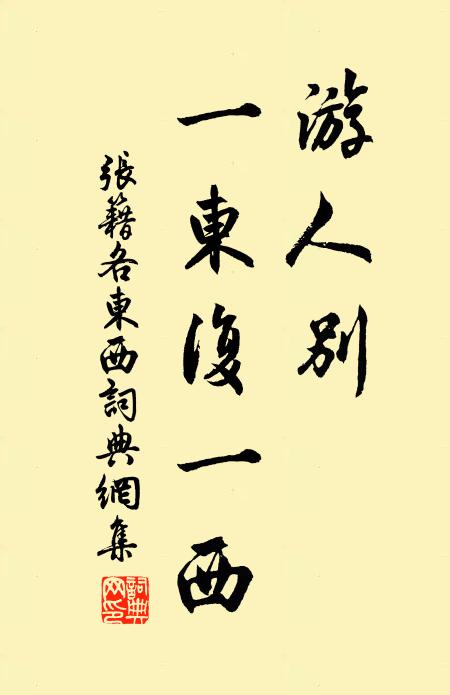 游人別
一東復一西
張籍各東西詞典網集
詞典网印